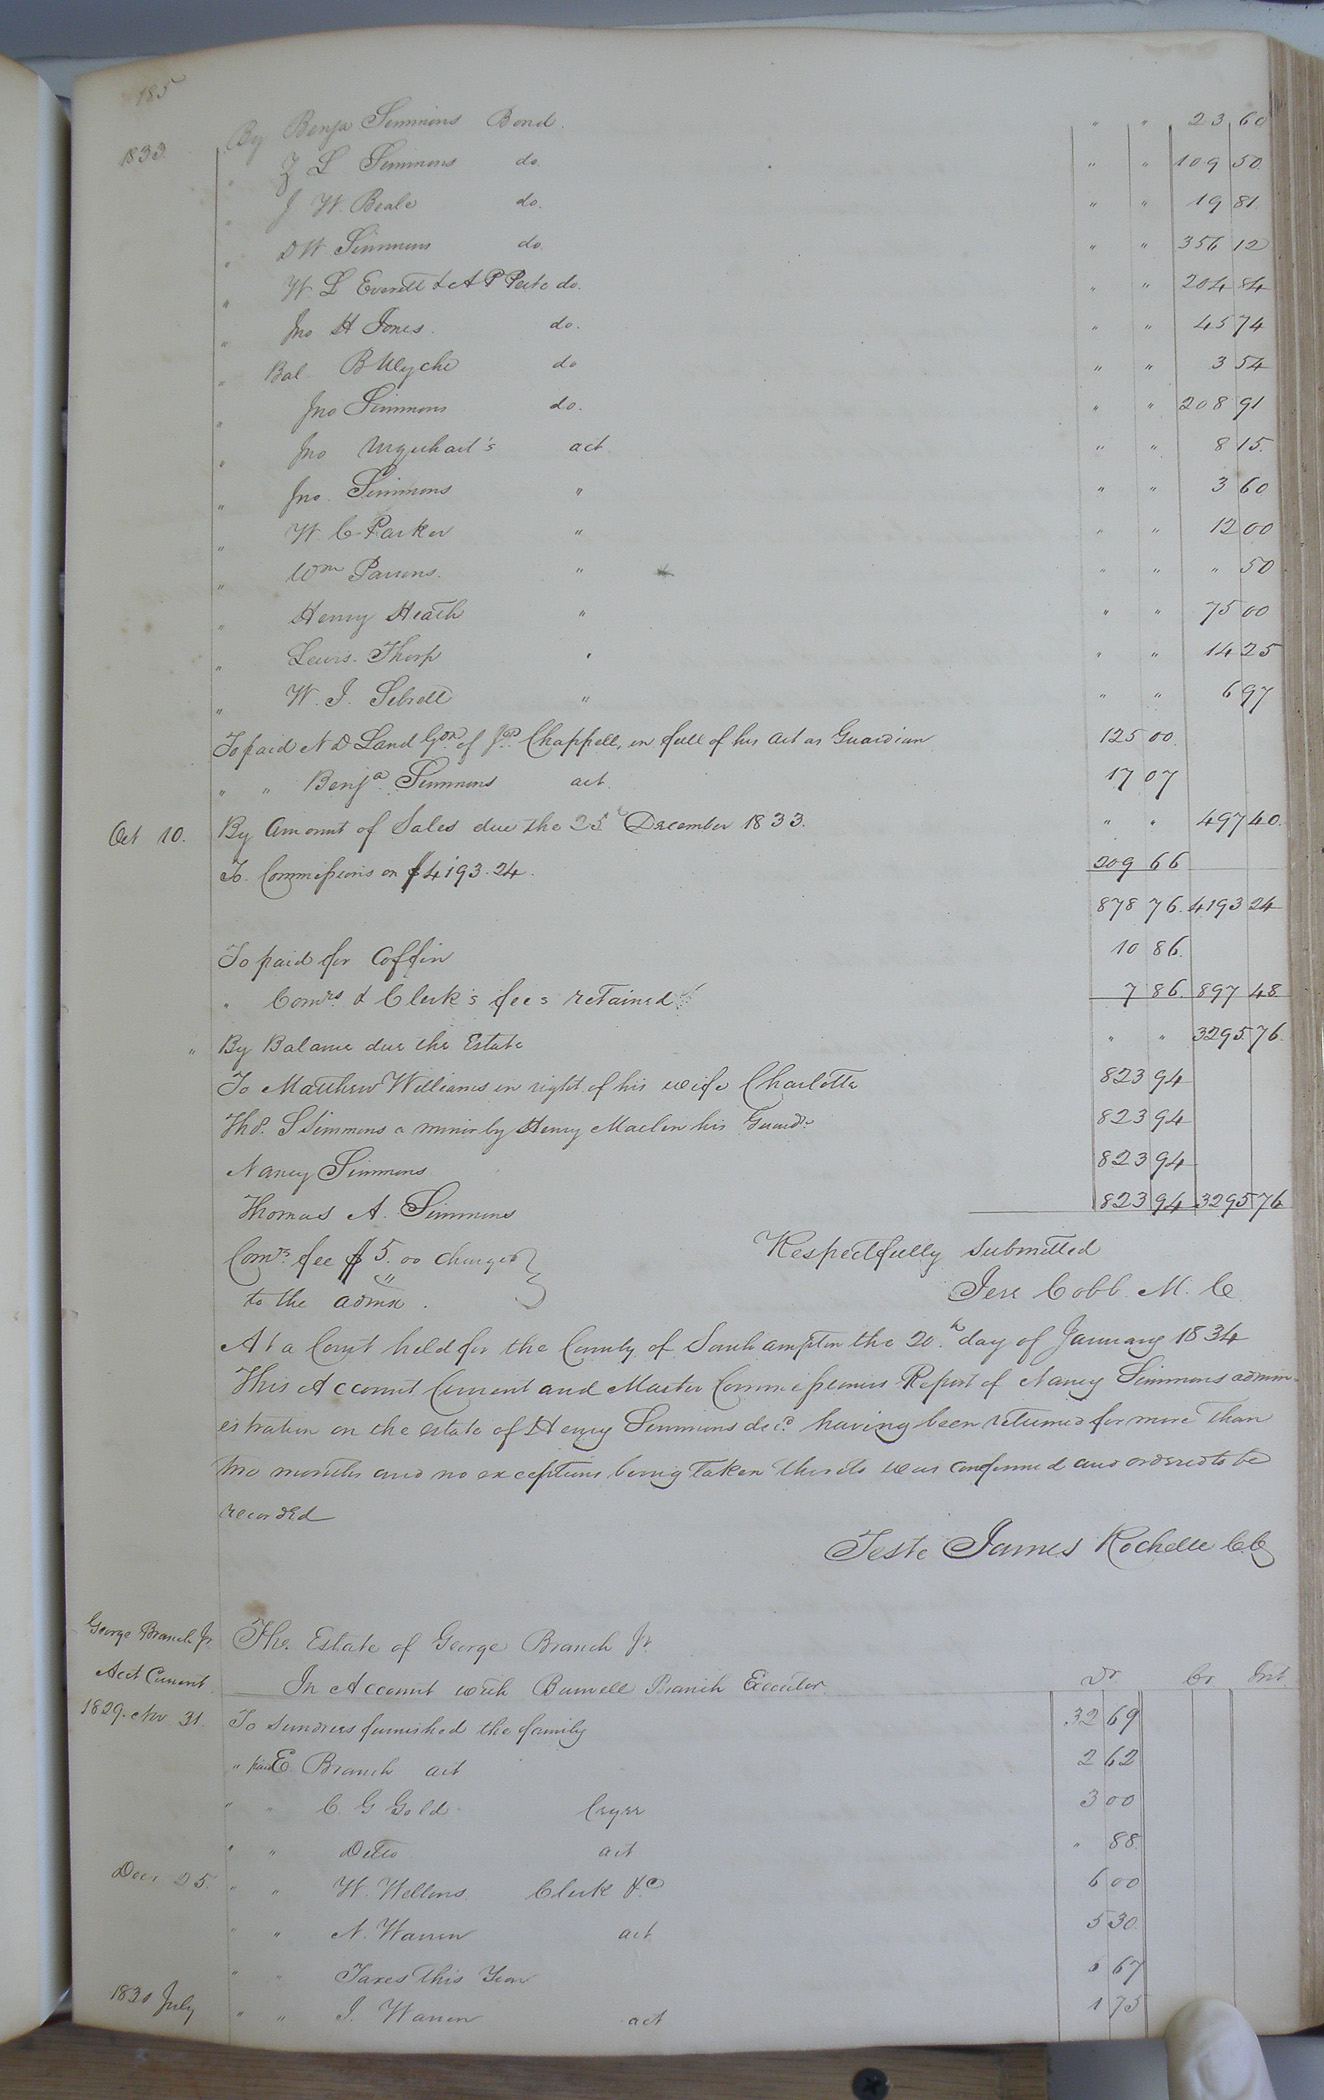 185
1833. By Benja Simmons Bond. " " 23 60
" Z L Simmons do. " " 109 50
" J W. Beale do. " " 19 81.
" D W Simmons do. " " 356 12
" W. L Everett & A P Peete do. " " 204 84
" Jno H Jones. do. " " 45 74
" Bal B Wyche do " " 3 54
" Jno Simmons do. " " 208 91
" Jno Urquhart's act " " 8 15.
" Jno. Simmons " " " 3 60
" W. C. Parker " " " 12 00
" Wm Parsons. " " " " 50
" Henry Heath " " " 75 00
" Lewis. Thorp " " " 14 25
" W. J. Sebrell " " " 6 97
To paid N D Land Gdn of Jas Chappell, in full of his act as Guardian 125 00.
" " Benja Simmons act. 17 07
Oct 10. By Amount of Sales due the 25th December 1833. " " 497 40.
To. Commissions on $4193.24. 209 66
878 76. 4193 24
To paid for Coffin 10 86.
" Comrs & Clerk's fees retained 7 86. 897 48.
" By Balance due the Estate " " 3295 76.
To Matthew Williams in right of his wife Charlotte 823 94
Ths. S Simmons a minor by Henry Maclin his Guardn 823 94
Nancy Simmons 823 94
Thomas A. Simmons 823 94 3295 76
Comrs. fee $5.00 charged Respectfully submitted
to the admx. Jere Cobb. M. C.
At a Court held for the County of Southampton the 20th day of January 1834
This Account Current and Master Commissioners Report of Nancy Simmons admin-
istration on the estate of Henry Simmons decd. having been returned for more than
two months and no exceptions being taken thereto was confirmed and ordered to be
recorded
Teste James Rochelle C.C.
George Branch Jr The Estate of George Branch Jr.
Acct Current. In Account with Burwell Branch Executor Dr Cr Int
1829. Nov 31. To Sundries furnished the family 32 69
" paid E Branch act 2 62
" " C. G Gold Cryer 3 00
" " Ditto act " 88.
Decr 25. " " W. Wellons. Clerk &c 6 00
" " N. Warren act 5 30.
" " Taxes this Year 6 67
1830 July " " J. Warren act 1 75